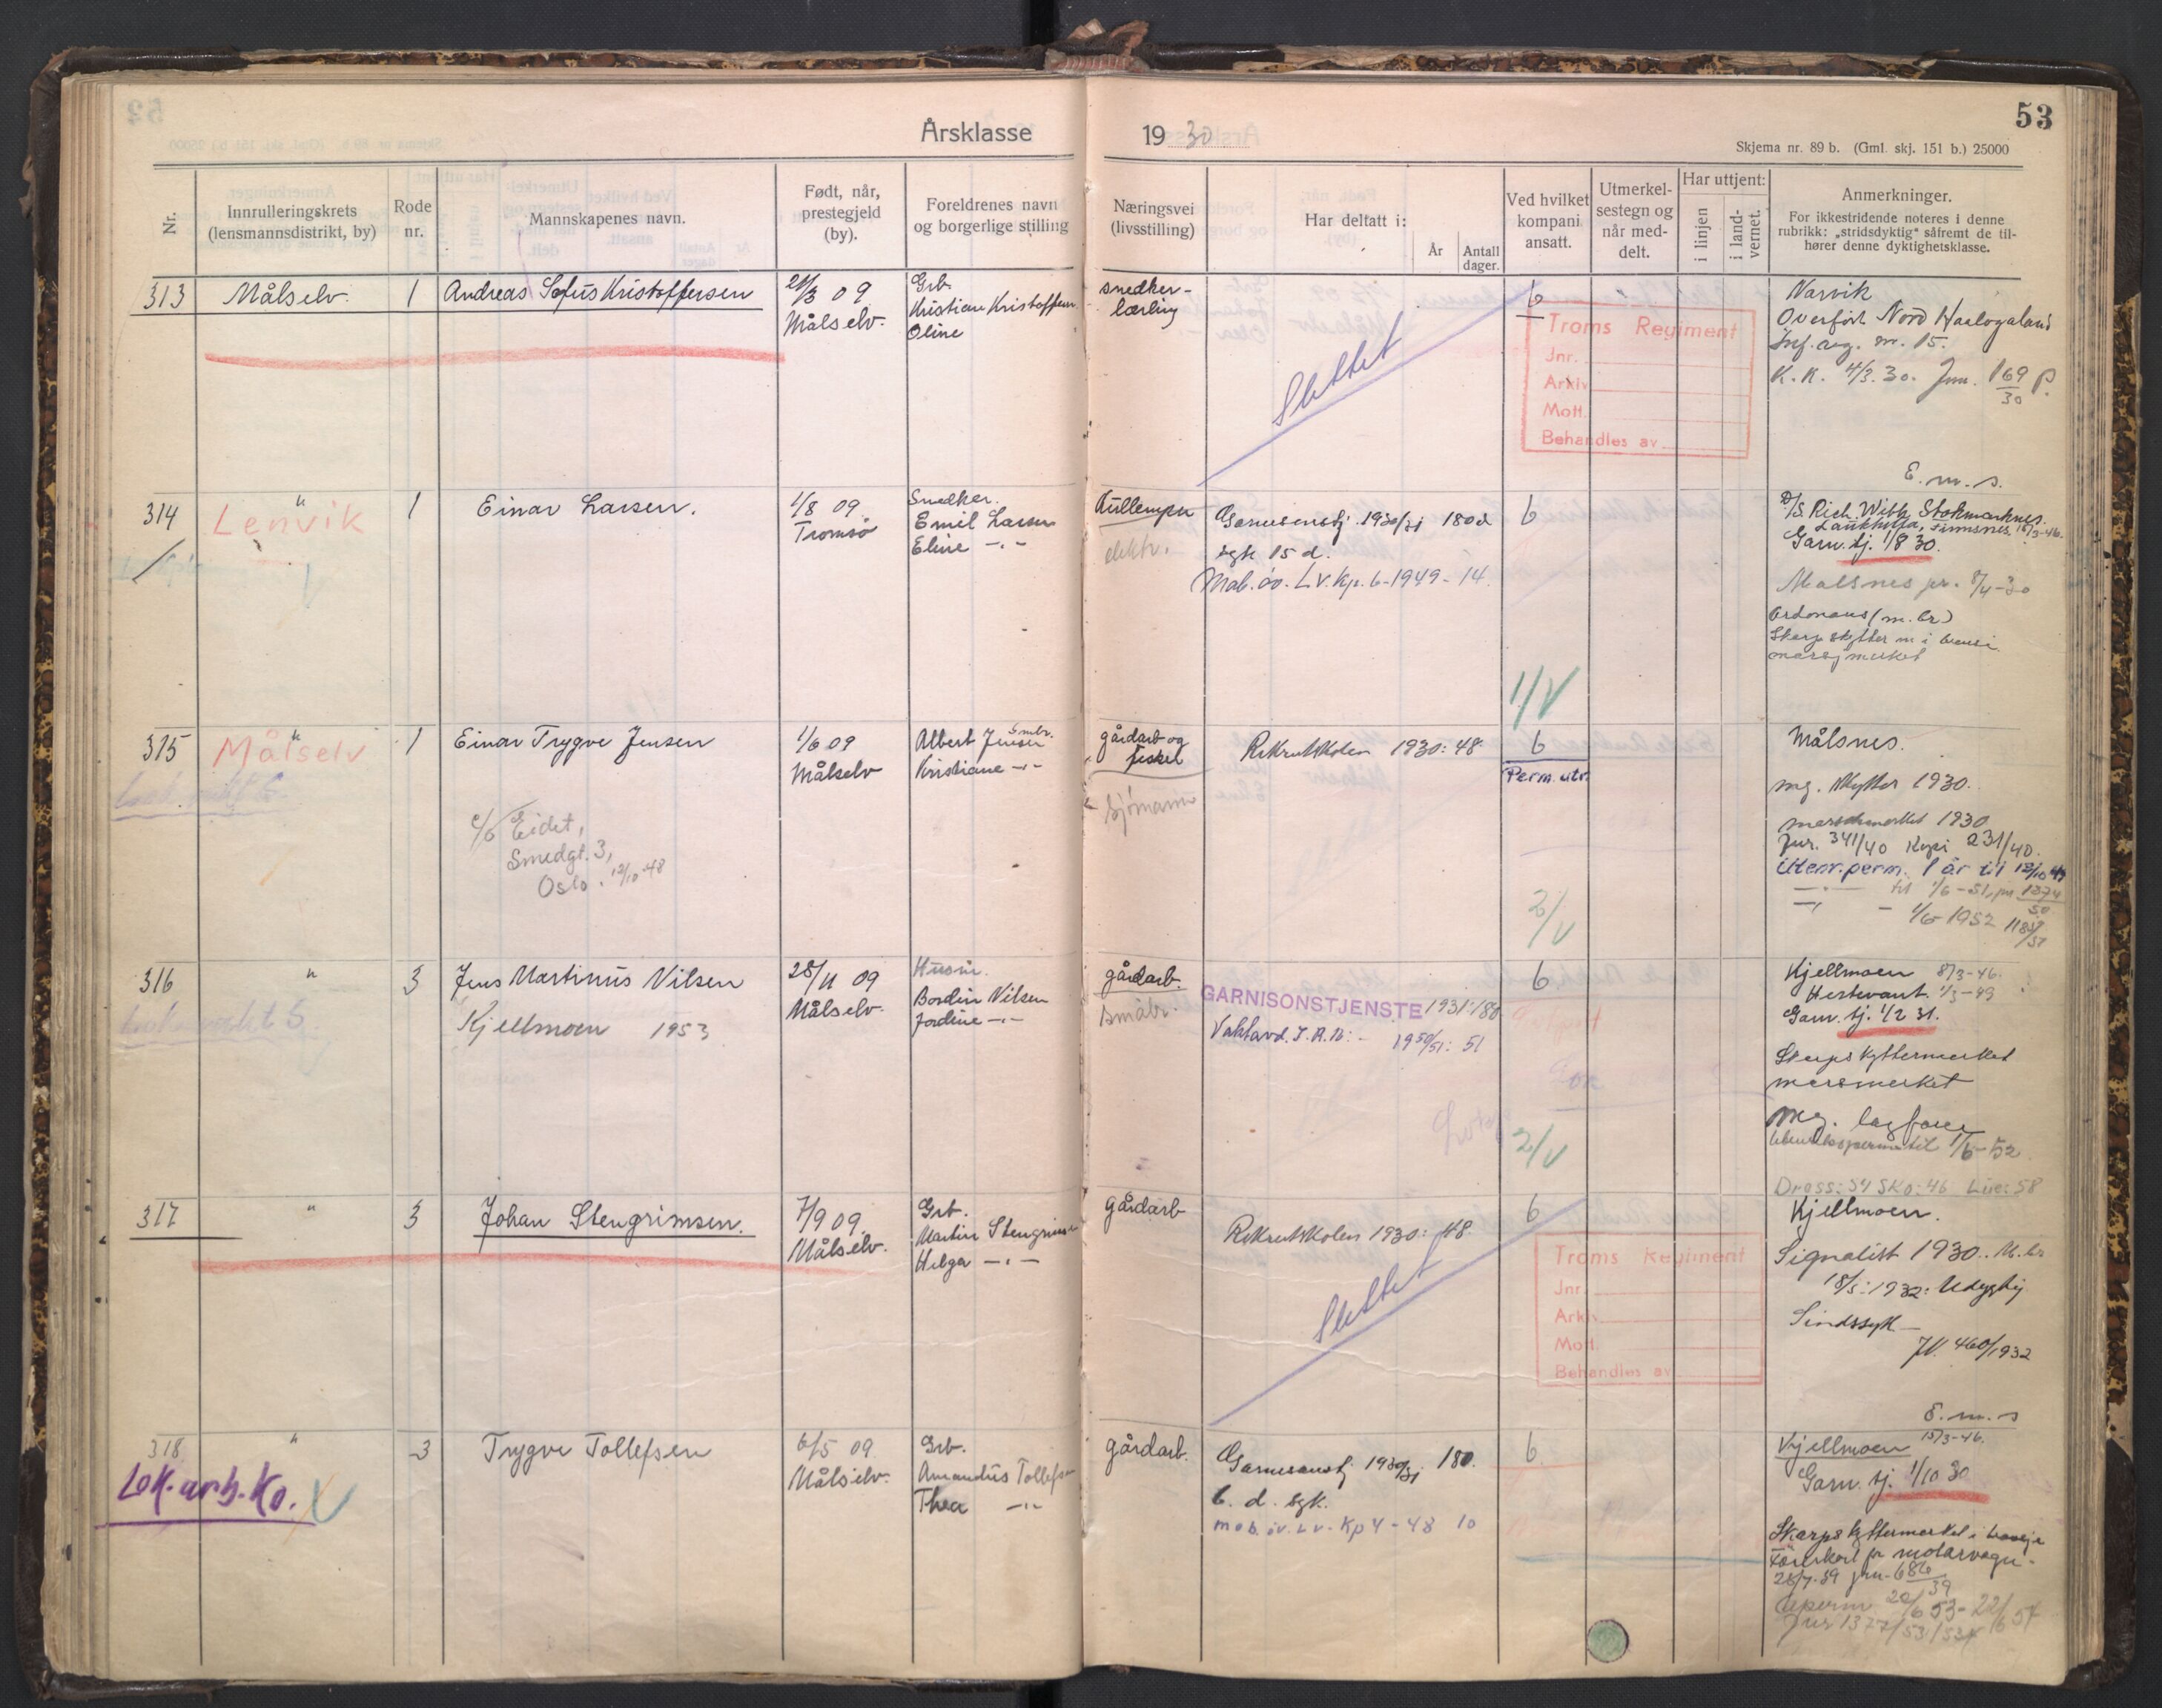 53
Årsklasse 1930
Skjema nr. 89 b. (Gml. skj. 151 b.) 25000
Nr.
Innrulleringskrets
(lensmannsdistrikt, by)
Rode
nr.
Mannskapenes navn.
Født, når,
prestegjeld
(by).
Foreldrenes navn
og borgerlige stilling
Næringsvei
(livsstilling)
Har deltatt i:
År
Antall
dager.
Ved hvilket
kompani
ansatt.
Utmerkel-
sestegn og
når med-
delt.
Har uttjent:
i linjen
i land-
vernet.
Anmerkninger.
For ikkestridende noteres i denne
rubrikk: „stridsdyktig" såfremt de til-
hører denne dyktighetsklasse.
313
Målselv.
1
Andreas Sofus Kristoffersen
21/3 09
Målselv.
Grb.
Kristian Kristoffersen
Oline
snedker-
lærling
Slettet
6
Troms Regiment
Jnr.
Arkiv
Mott.
Behandles av
Narvik
Overført Nord Haalogaland
Inf. reg. nr. 15.
K.K. 4/3.30. Jnr. 169/30 P.
314
"
Lenvik
1
Einar Larsen.
1/8 09
Tromsø
Snedker.
Emil Larsen
Eline -"-
elektr.
Garnisonstj. 1930/31 180 d
sgk 15 d.
Mob. øv. Lv. Kp. 6-1949-14.
6
1/V
E. m. s.
D/S Rich. With Stokmarknes.
Laukhella, Finnsnes. 15/3-46.
Garn. tj. 1/8 30.
Målsnes pr. 8/4-30
Ordonans (m. br)
Skarpskytter m i
marsjmerket
315
"
Målselv
1
Einar Trygve Jensen
1/6 09
Målselv
Smbr.
Albert Jensen
Kristiane -"-
gårdarb og
fiskeri
sjømann
c/o Eidet,
Smedgt. 3,
Oslo. 12/10-48
Rekrutskolen 1930: 48
6
Perm. utr.
2/V
Målsnes.
mg. skytter 1930.
marschmerket 1930
Jnr. 341/40 Kopi 231/40.
Utenr. perm. 1 år til 12/10 49
-"- til 1/6-51, jnr 1374/50
-"- - 1/6 1952
316
"
3
Jens Martinus Nilsen
Kjellmoen 1953
28/11 09
Målselv.
Husm.
Bordin Nilsen
Jordine -"-
gårdarb.
småbr.
GARNISONSTJENSTE 1931: 180
Vaktavd. I.R.16: - 1950/51: 51
6
2/V
Kjellmoen 8/3-46.
Hestevant. 1/3-49
Garn. tj. 1/2 31.
Skarpskyttermerket
marsmerket
Mg. lagfører
utenriksperm til 1/6-52
Dress: 54 Sko: 46 Lue: 58
317
"
3
Johan Stengrimsen.
7/9 09.
Målselv.
Grb.
Martin Stengrimsen
Helga -"-
gårdarb
Rekrutskolen 1930: 48.
Slettet
6
Troms Regiment
Jnr.
Arkiv
Mott.
Behandles av
Kjellmoen.
Signalist 1930. M. br
18/5: 1932: Udygtig
Sindssyk -
JN. 460/1932
318
"
Lok. arb. Ko.
3
Trygve Tollefsen
6/5 09
Målselv.
Grb.
Amandus Tollefsen
Thea -"-
gårdarb.
Garnisonstj 1930/31 180.
6. d. sgk.
mob. øv. Lv. Kp 4-48 10
6
E. m. s
Kjellmoen 15/3-46.
Garn. tj. 1/10 30
Skarpskyttermerket i bronse
Førerkort for motorvogn -
28/7-39 jnr. 686/39
Uperm 20/6 53-22/6 54
Jnr 1377/53